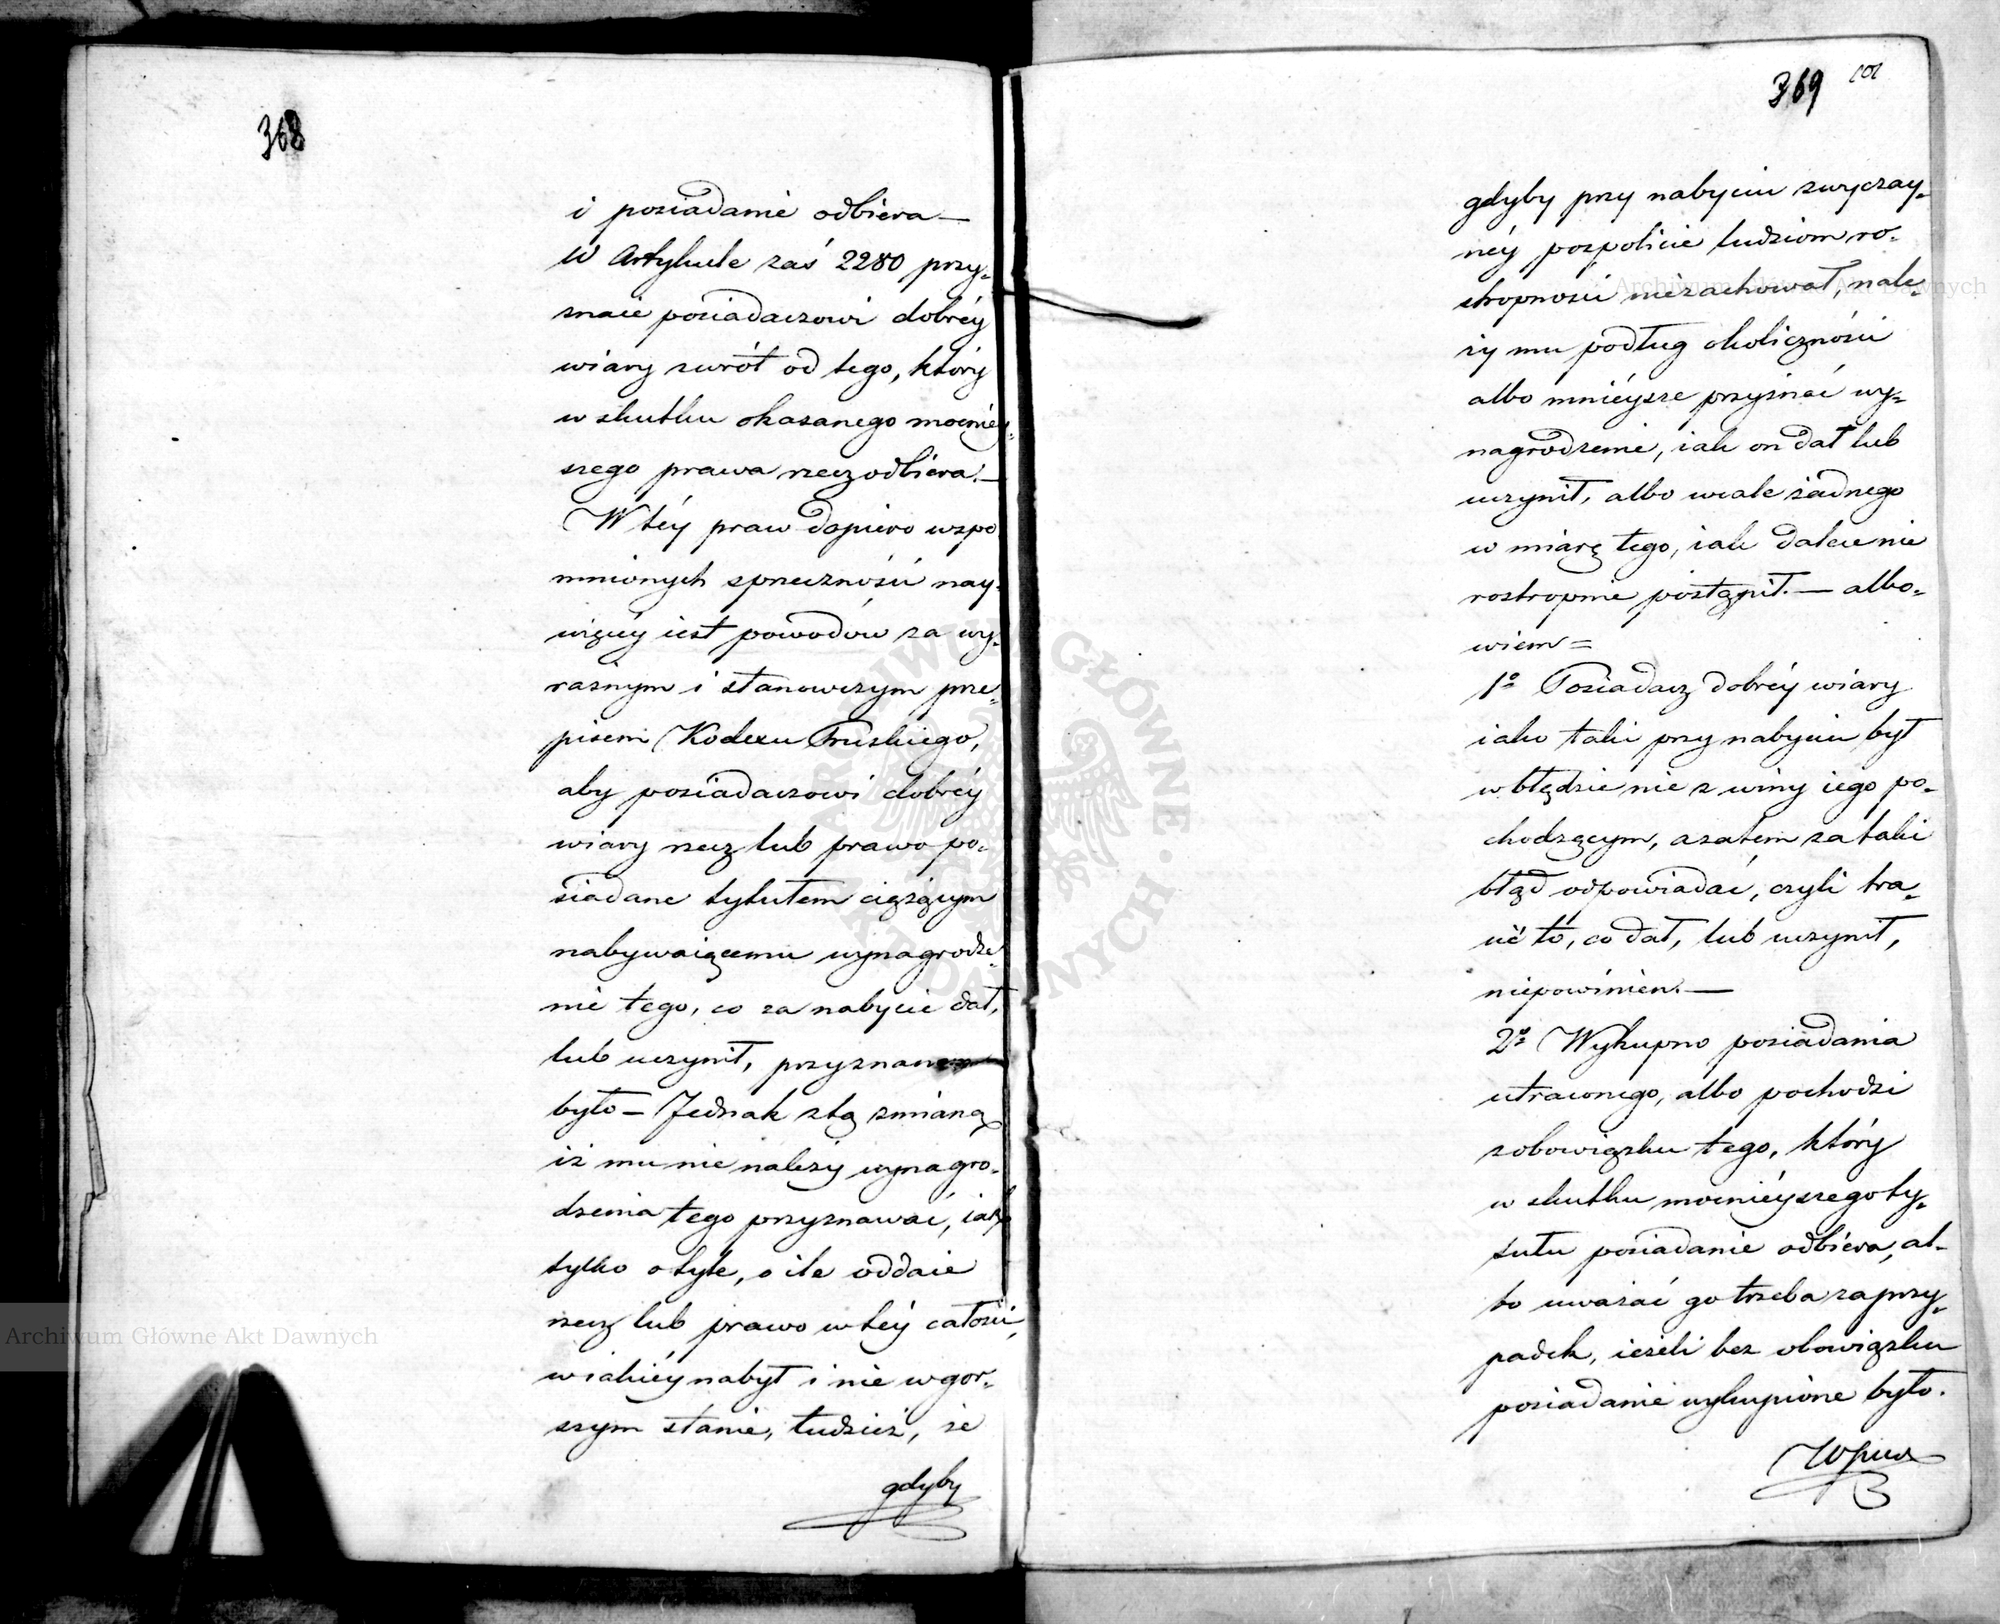 368
i posiadanie odbiera —
W Artykule zaś 2280 przy=
znaie posiadaczowi dobréy
wiary zwrót od tego, który
w skutku okazanego mocniéy=
szego prawa rzecz odbiera. —
W téy praw dopiero wspo
mnionych sprzeczności nay=
więcéy iest powodów za wy=
raznym i stanowczym prze=
pisem Kodexu Pruskiego,
aby posiadaczowi dobréy
wiary rzecz lub prawo po=
siadane tytułem ciężącym
nabywaiącemu wynagrodze=
nie tego, co za nabycie dał,
lub uczynił, przyznane
było — Jednak z tą zmianą
iż mu nie należy wynagro=
dzenia tego przyznawać, iak
tylko o tyle, o ile oddaie
rzecz lub prawo w téy całości,
w iakiéy nabył i nie w gor=
szym stanie, tudzież, że
gdyby
369
gdyby przy nabyciu zwyczay=
néy pospolicie ludziom ro=
stropności niezachował, nale=
ży mu podług okoliczności
albo mniéysze przyznać wy=
nagrodzenie, iak on dał lub
uczynił, albo wcale żadnego
w miarę tego, iak dalece nie
rostropnie postąpił. — albo=
wiem =
1o Posiadacz dobréy wiary
iako taki przy nabyciu był
w błędzie nie z winy iego po=
chodzącym, a zatem za taki
błąd odpowiadać, czyli tra=
cić to, co dał, lub uczynił,
niepowinien. —
2o Wykupno posiadania
utraconego, albo pochodzi
z obowiązku tego, który
w skutku mocniéyszego ty=
tułu posiadanie odbiera, al=
bo uważać go trzeba za przy=
padek, ieżeli bez obowiązku
posiadanie wykupione było.